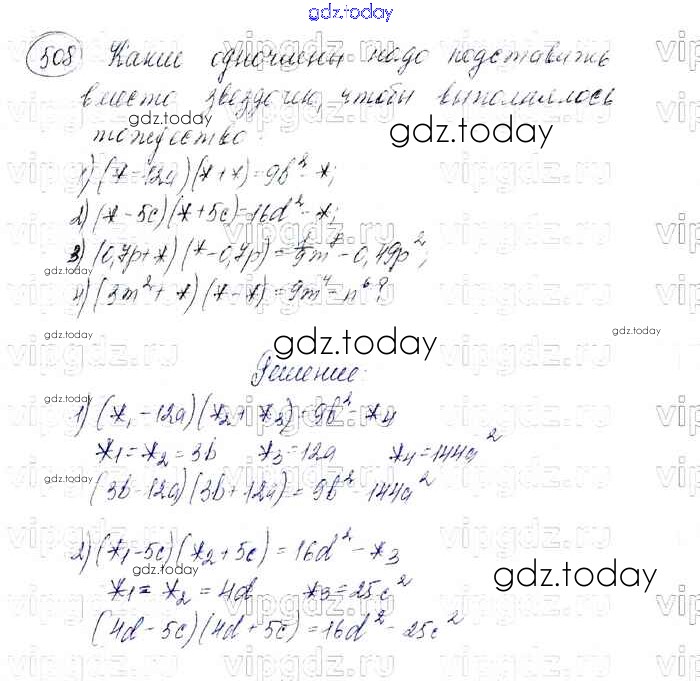 gdz.today
508 Какие одночлены надо подставить
вместо звездочек, чтобы выполнялось
gdz.today
тождество:
1) (* - 12a)(* + *) = 9b² - *;
2) (* - 5c)(* + 5c) = 16d² - *;
3) (0,7p + *)(* - 0,7p) = 1/9 m⁸ - 0,49p²;
4) (3m² + *)(* - *) = 9m⁴ - n⁶?
gdz.today
gdz.today
gdz.today
Решение:
gdz.today
1) (*₁ - 12a)(*₂ + *₃) = 9b² - *₄
*₁ = *₂ = 3b *₃ = 12a *₄ = 144a²
gdz.today
(3b - 12a)(3b + 12a) = 9b² - 144a²
2) (*₁ - 5c)(*₂ + 5c) = 16d² - *₃
gdz.today
gdz.today
*₁ = *₂ = 4d *₃ = 25c²
(4d - 5c)(4d + 5c) = 16d² - 25c²
vipgdz.ru